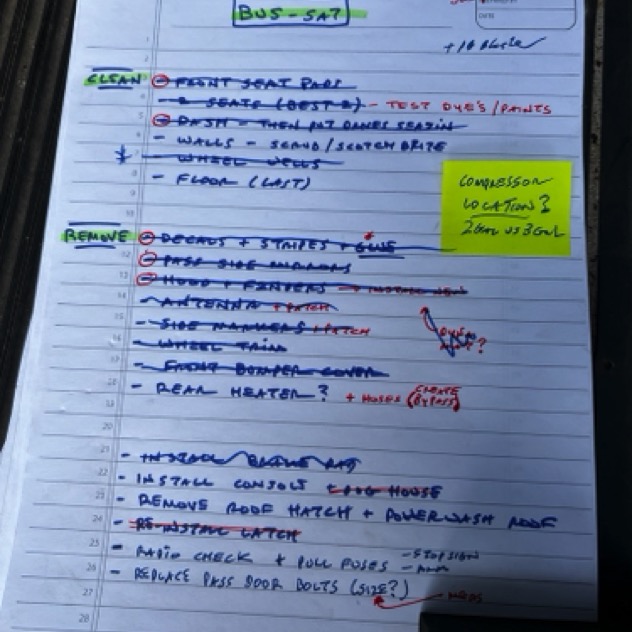 BUS-SAT
DATE
CLEAN
- FRONT SEAT PADS
- 2 SEATS (BEST 2) - TEST DYE'S/PAINTS
- DASH - THEN PUT DANES SEAT IN
- WALLS - SCRUB/SCOTCH BRITE
- WHEEL WELLS
- FLOOR (LAST)
COMPRESSOR
LOCATION?
2GAL VS 3GAL
REMOVE
- DECALS + STRIPES + GLUE
- PASS SIDE MIRRORS
- HOOD + FENDERS → INSTALL NEW
- ANTENNA + PATCH
- SIDE MARKERS + PATCH
- WHEEL TRIM
- FRONT BUMPER COVER
- REAR HEATER? + HOSES (CREATE BYPASS)
- INSTALL
- INSTALL CONSOLE + DOG HOUSE
- REMOVE ROOF HATCH + POWERWASH ROOF
- RE-INSTALL LATCH
- RADIO CHECK + PULL FUSES - STOP SIGN
- REPLACE PASS DOOR BOLTS (SIZE?)